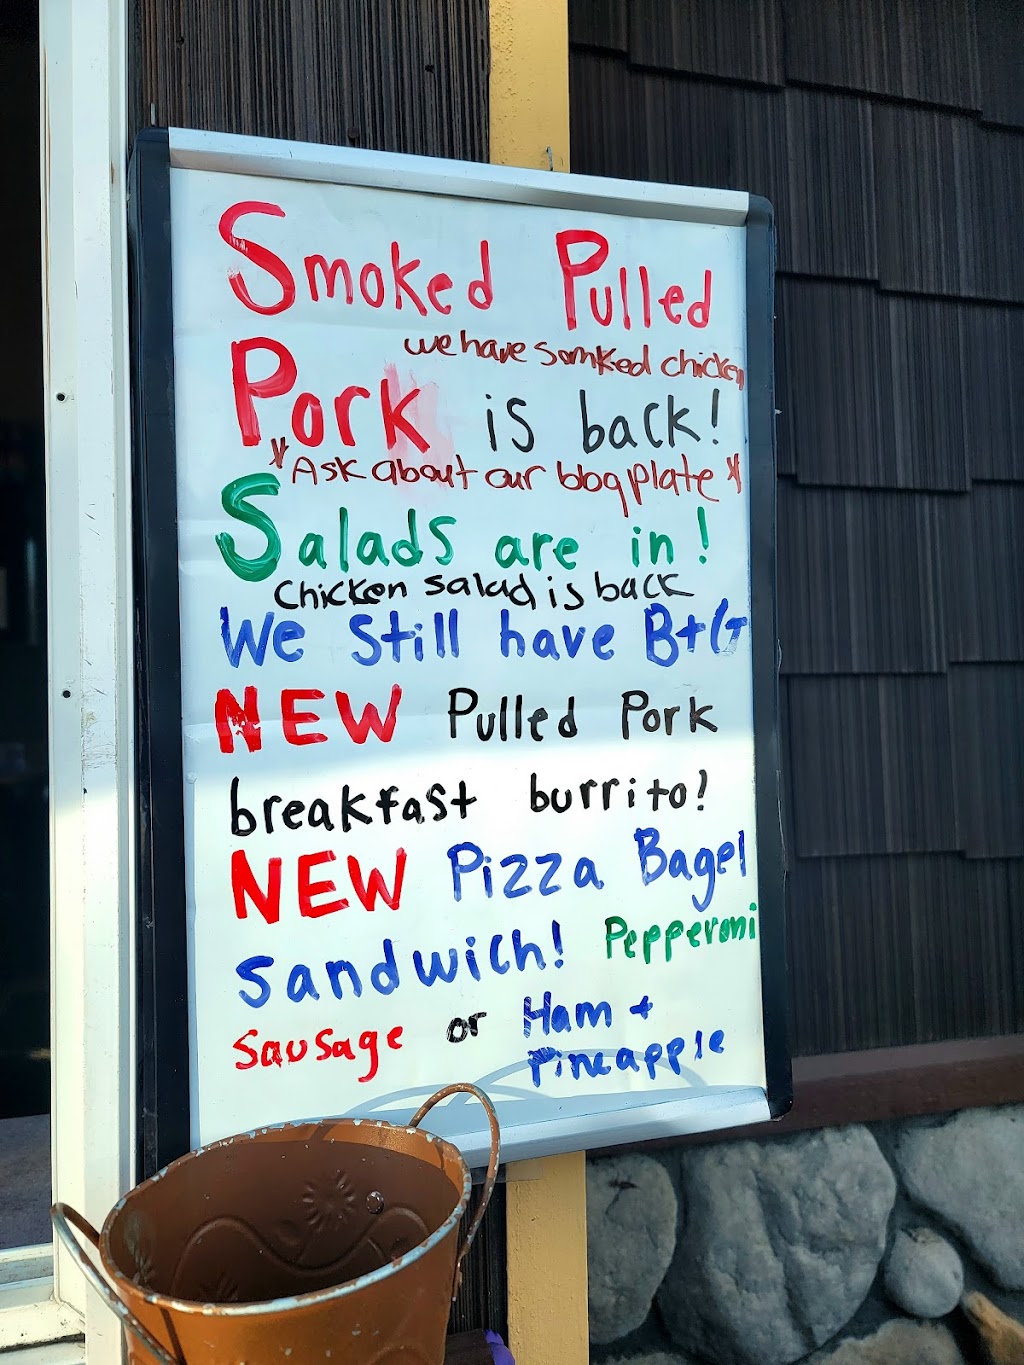 Smoked Pulled
we have somked chicken
Pork is back!
*Ask about our bbq plate*
Salads are in!
Chicken salad is back
We still have B+G
NEW Pulled Pork
breakfast burrito?
NEW Pizza Bagel
sandwich! Pepperoni
sausage or Ham +
pineapple